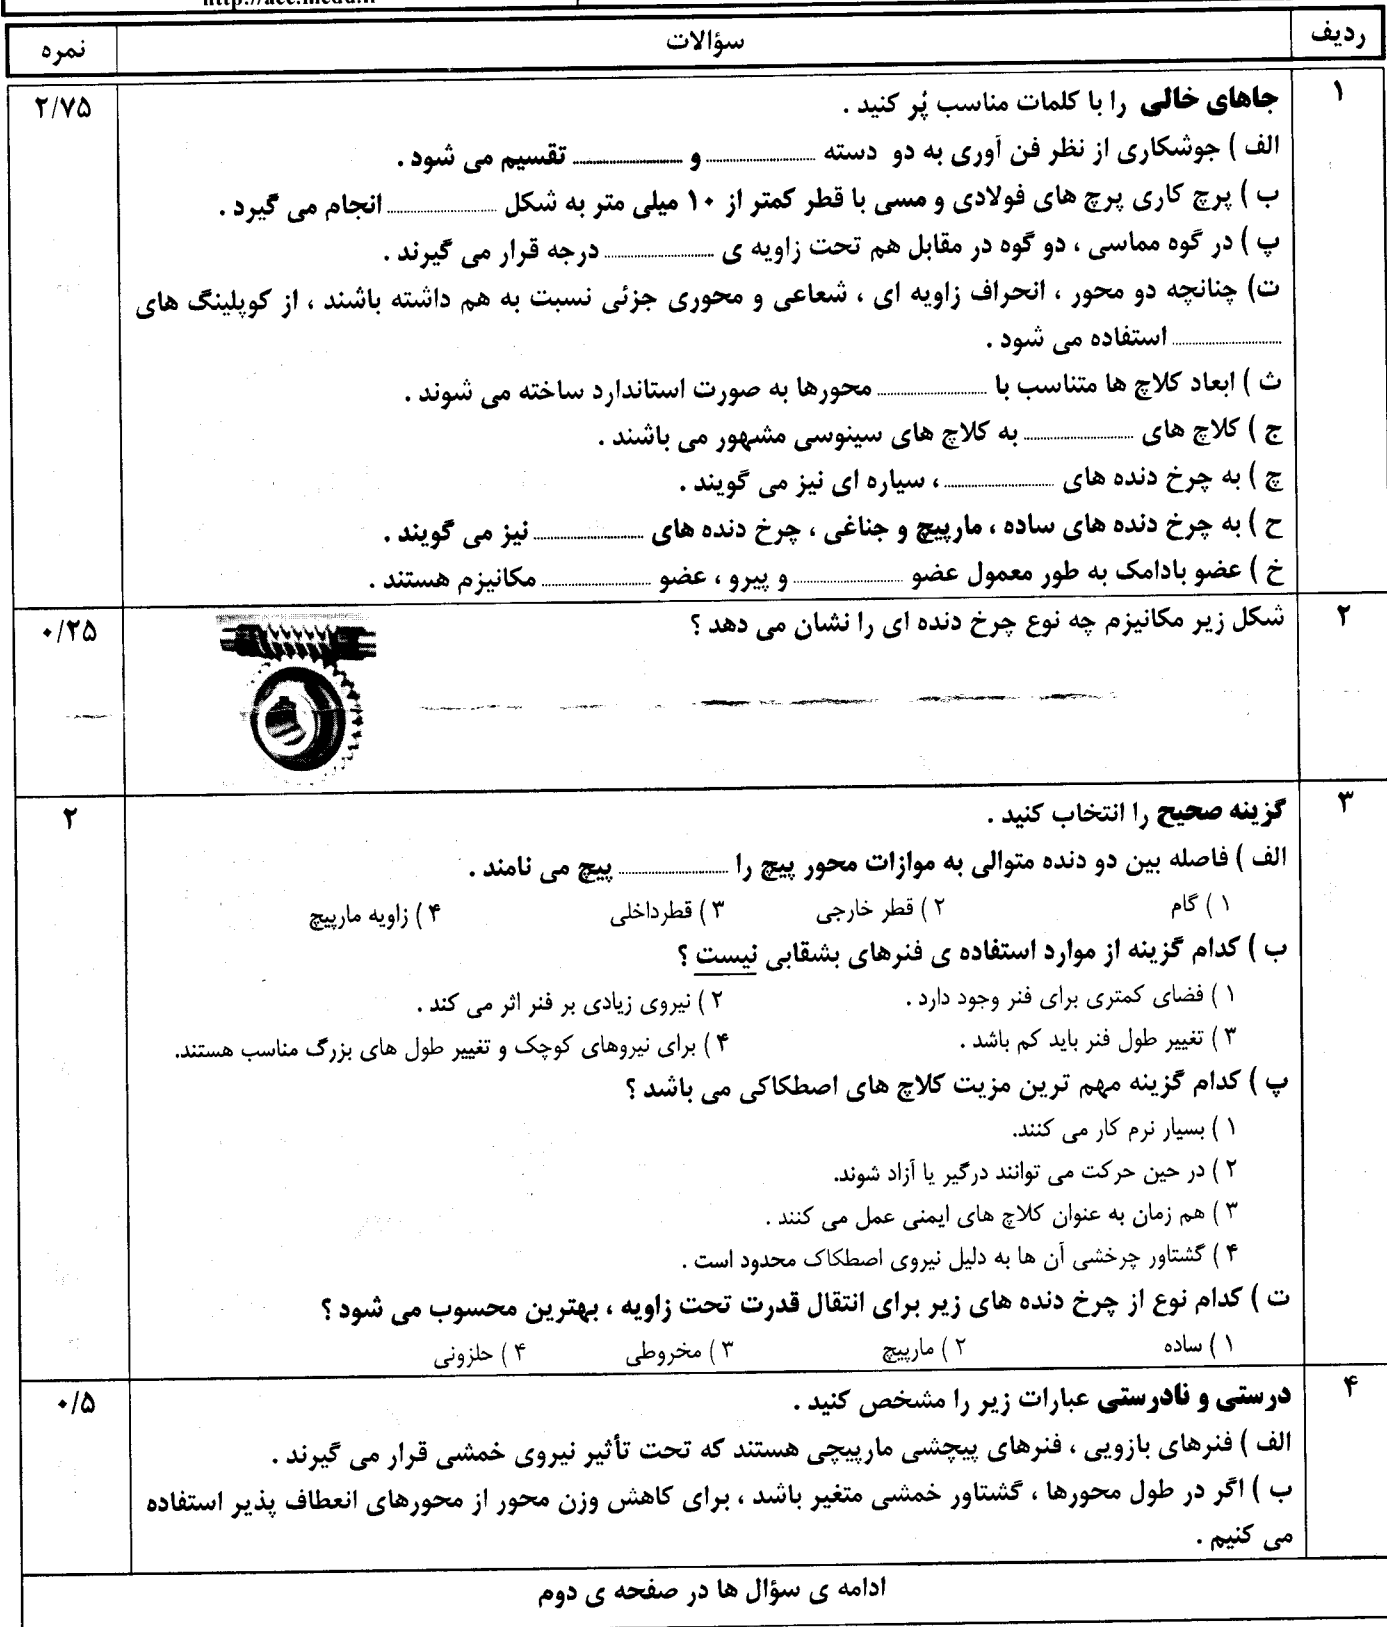 ردیف
سؤالات
نمره
۱
جاهای خالی را با کلمات مناسب پُر کنید .
۲/۷۵
الف ) جوشکاری از نظر فن آوری به دو دسته ........ و ........ تقسیم می شود .
ب ) پرچ کاری پرچ های فولادی و مسی با قطر کمتر از ۱۰ میلی متر به شکل ........ انجام می گیرد .
پ ) در گوه مماسی ، دو گوه در مقابل هم تحت زاویه ی ........ درجه قرار می گیرند .
ت) چنانچه دو محور ، انحراف زاویه ای ، شعاعی و محوری جزئی نسبت به هم داشته باشند ، از کوپلینگ های
........ استفاده می شود .
ث ) ابعاد کلاچ ها متناسب با ........ محورها به صورت استاندارد ساخته می شوند .
ج ) کلاچ های ........ به کلاچ های سینوسی مشهور می باشند .
چ ) به چرخ دنده های ........ ، سیاره ای نیز می گویند .
ح ) به چرخ دنده های ساده ، مارپیچ و جناغی ، چرخ دنده های ........ نیز می گویند .
خ ) عضو بادامک به طور معمول عضو ........ و پیرو ، عضو ........ مکانیزم هستند .
۲
شکل زیر مکانیزم چه نوع چرخ دنده ای را نشان می دهد ؟
۰/۲۵
۳
گزینه صحیح را انتخاب کنید .
۲
الف ) فاصله بین دو دنده متوالی به موازات محور پیچ را ........ پیچ می نامند .
۱ ) گام ۲ ) قطر خارجی ۳ ) قطرداخلی ۴ ) زاویه مارپیچ
ب ) کدام گزینه از موارد استفاده ی فنرهای بشقابی نیست ؟
۱ ) فضای کمتری برای فنر وجود دارد . ۲ ) نیروی زیادی بر فنر اثر می کند .
۳ ) تغییر طول فنر باید کم باشد . ۴ ) برای نیروهای کوچک و تغییر طول های بزرگ مناسب هستند.
پ ) کدام گزینه مهم ترین مزیت کلاچ های اصطکاکی می باشد ؟
۱ ) بسیار نرم کار می کنند.
۲ ) در حین حرکت می توانند درگیر یا آزاد شوند.
۳ ) هم زمان به عنوان کلاچ های ایمنی عمل می کنند .
۴ ) گشتاور چرخشی آن ها به دلیل نیروی اصطکاک محدود است .
ت ) کدام نوع از چرخ دنده های زیر برای انتقال قدرت تحت زاویه ، بهترین محسوب می شود ؟
۱ ) ساده ۲ ) مارپیچ ۳ ) مخروطی ۴ ) حلزونی
۴
درستی و نادرستی عبارات زیر را مشخص کنید .
۰/۵
الف ) فنرهای بازویی ، فنرهای پیچشی مارپیچی هستند که تحت تأثیر نیروی خمشی قرار می گیرند .
ب ) اگر در طول محورها ، گشتاور خمشی متغیر باشد ، برای کاهش وزن محور از محورهای انعطاف پذیر استفاده
می کنیم .
ادامه ی سؤال ها در صفحه ی دوم